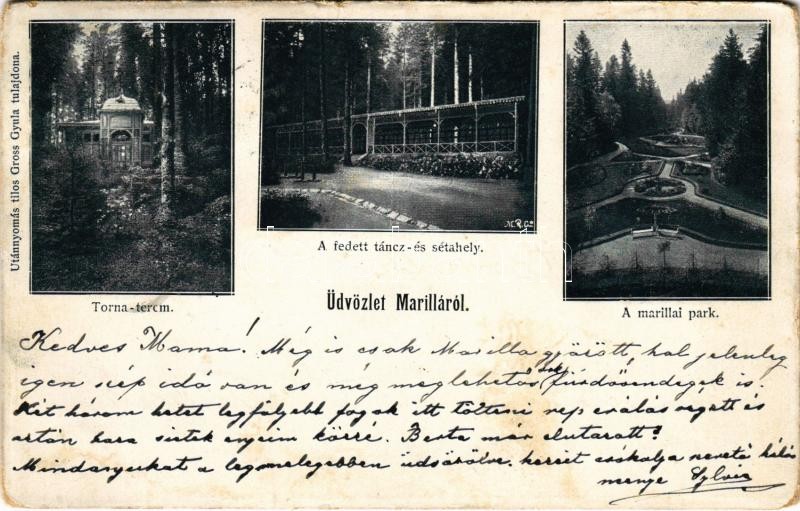 Utánnyomás tilos Gross Gyula tulajdona.
M.R.Co
Torna-terem.
A fedett táncz-és sétahely.
A marillai park.
Üdvözlet Marilláról.
Kedves Mama! Még is csak Marilla győzött, hol jelenleg
igen szép idő van és még meglehetős sok fürdővendégek is.
Két három hetet legfeljebb fogok itt tölteni
aztán haza sietek enyéim közzé. Berta már elutazott?
Mindanyiukat a legmelegebben üdvözölve. kezeit csókolja
menye Sylvia